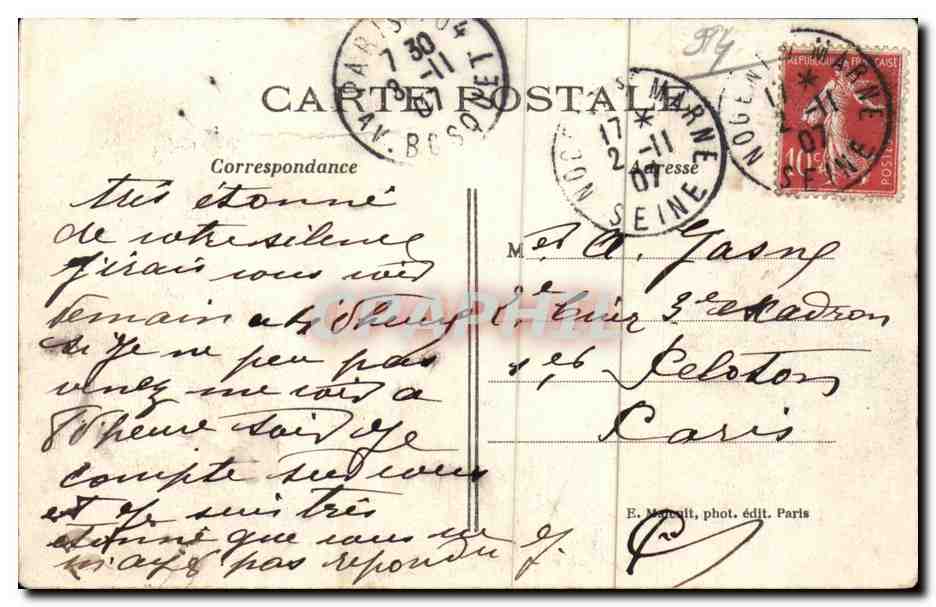 PARIS 104
7 30
3 -11
07
AV. BOSQUET
974
NOGENT S MARNE
17 *
2 -11
07
SEINE
NOGENT S MARNE
17 *
2 -11
07
SEINE
REPUBLIQUE FRANÇAISE
10 c
POSTES
CARTE POSTALE
Correspondance
Adresse
très étonné
de votre silence
j'irais vous voir
demain a
si je ne peu pas
venez me voir a
8 heure soir je
compte sur vous
et je suis très
étonné que vous ne
m'ayez pas repondu
M et A. Jasny
2e Cuir 3 escadron
1er Peloton
Paris
E. Malcuit, phot. édit. Paris
CPAPHIL